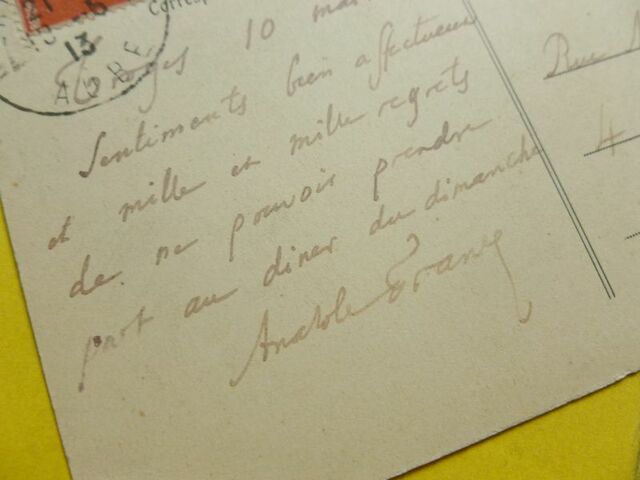 Corresp
21
13
10 mar
Sentiments bien affectueux
et mille et mille regrets
de ne pouvoir prendre
part au diner du dimanche
Anatole France
Rue
4